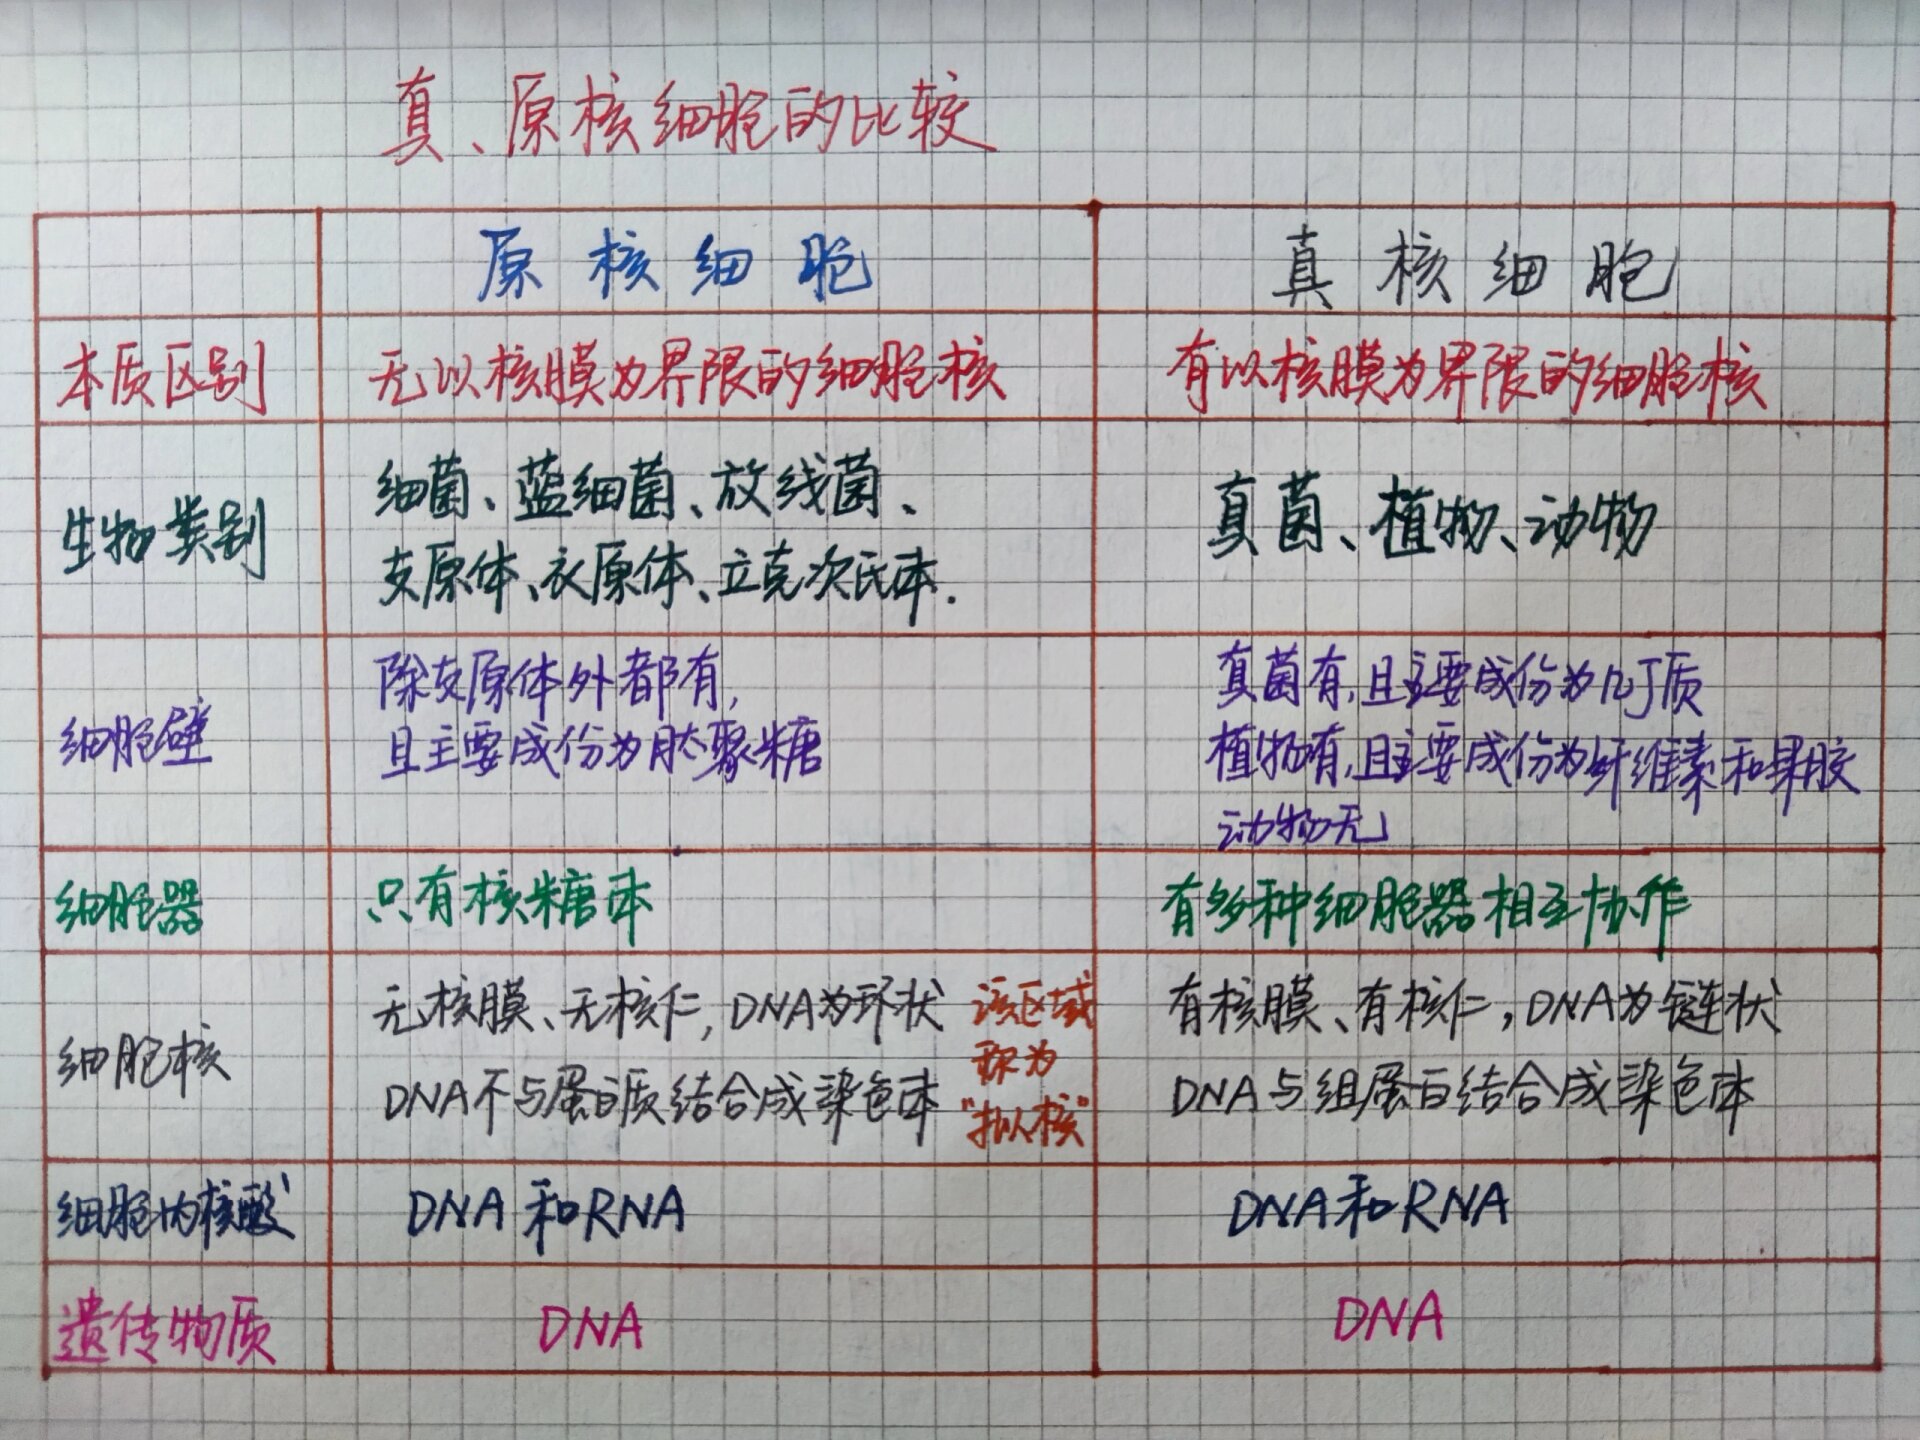 真、原核细胞的比较
原核细胞 真核细胞
本质区别 无以核膜为界限的细胞核 有以核膜为界限的细胞核
生物类别
细菌、蓝细菌、放线菌、
支原体、衣原体、立克次氏体.
真菌、植物、动物
细胞壁
除支原体外都有,
且主要成份为肽聚糖
真菌有,且主要成份为几丁质
植物有,且主要成份为纤维素和果胶
动物无
细胞器 只有核糖体 有多种细胞器相互协作
细胞核
无核膜、无核仁,DNA为环状
DNA不与蛋白质结合成染色体
该区域
称为
"拟核"
有核膜、有核仁,DNA为链状
DNA与组蛋白结合成染色体
细胞内核酸 DNA和RNA DNA和RNA
遗传物质 DNA DNA